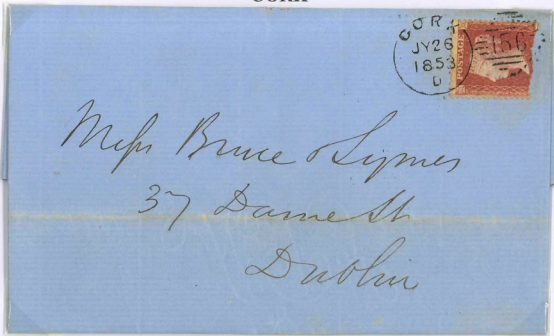 CORK
CORK
JY 26
1853
D
156
POSTAGE
Messrs Bruce & Symes
37 Dame St
Dublin